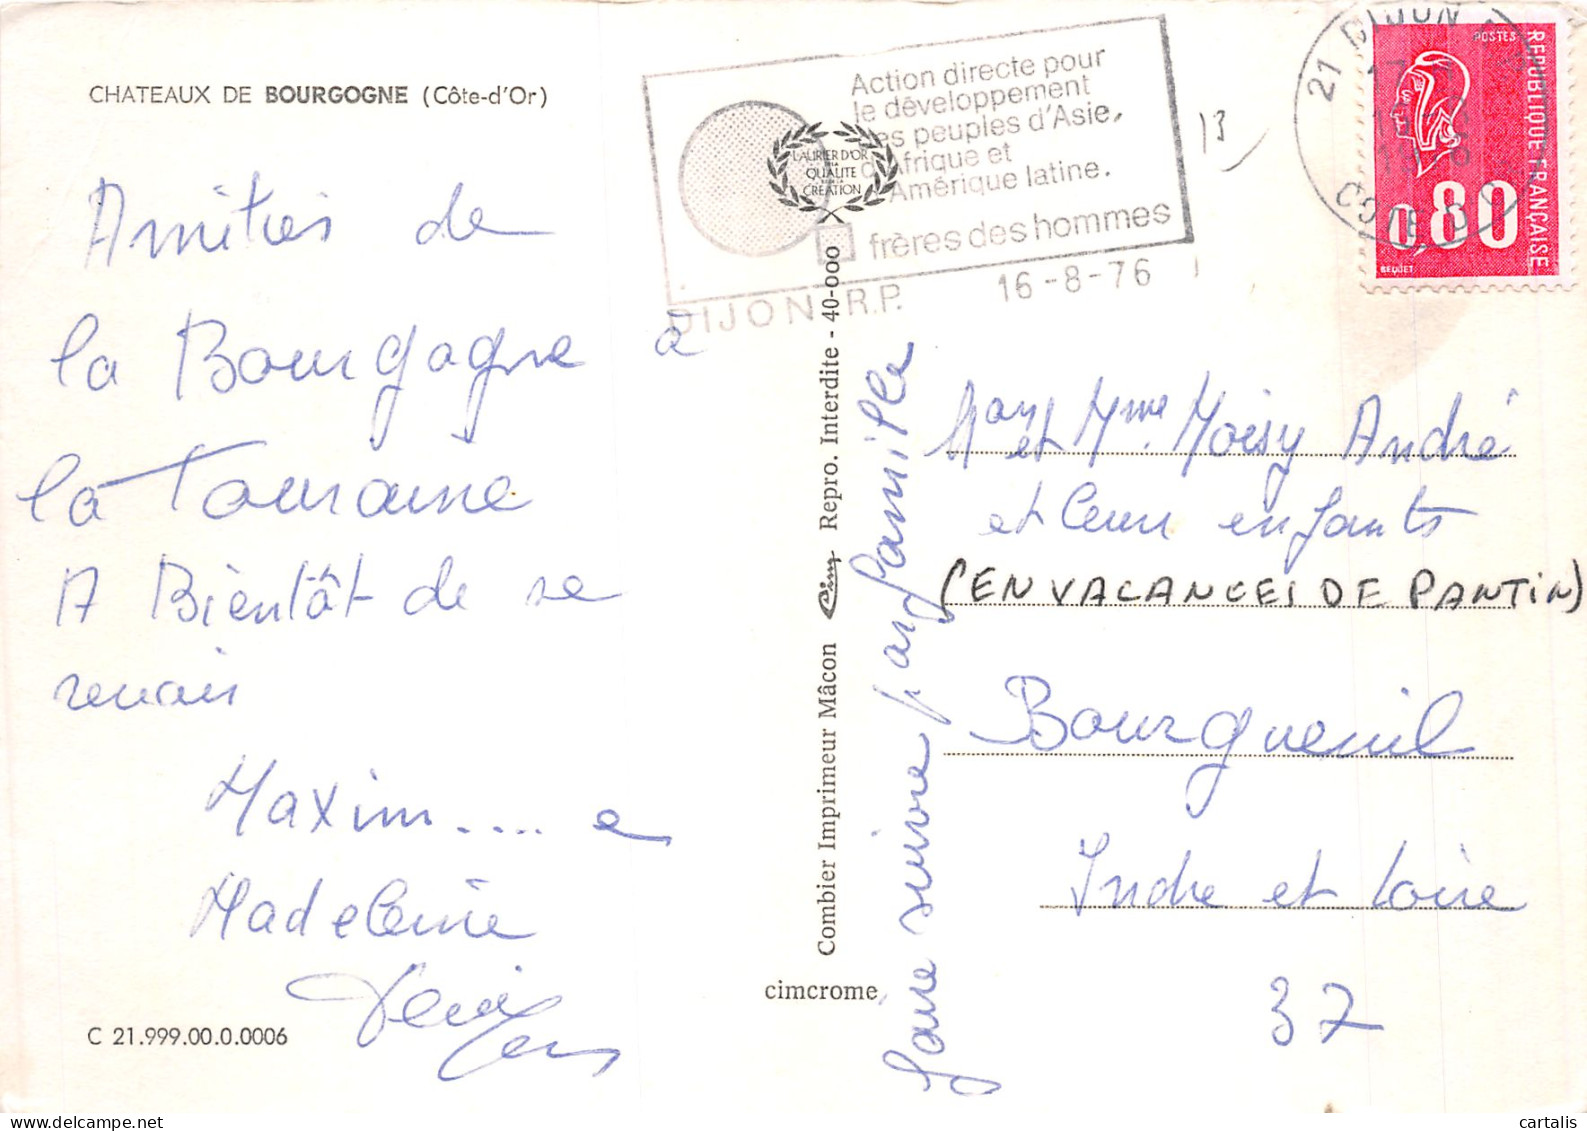 CHATEAUX DE BOURGOGNE (Côte-d'Or)
Amitiés de
la Bourgogne à
la Touraine
A Bientôt de se
revoir
Maxim.... e
Madeleine
C 21.999.00.0.0006
Action directe pour
le développement
des peuples d'Asie,
d'Afrique et
d'Amérique latine.
frères des hommes
DIJON R.P. 16-8-76
LAURIER D'OR
DE LA
QUALITE
CREATION
13
21 DIJON
COTE D'OR
POSTES
REPUBLIQUE FRANÇAISE
0,80
BEQUET
Combier Imprimeur Mâcon Cim Repro. Interdite - 40-000
cimcrome
faire suivre par famille
et Mme Moisy André
et leurs enfants
(EN VACANCES DE PANTIN)
Bourgueuil
Indre et Loire
37
cartalis